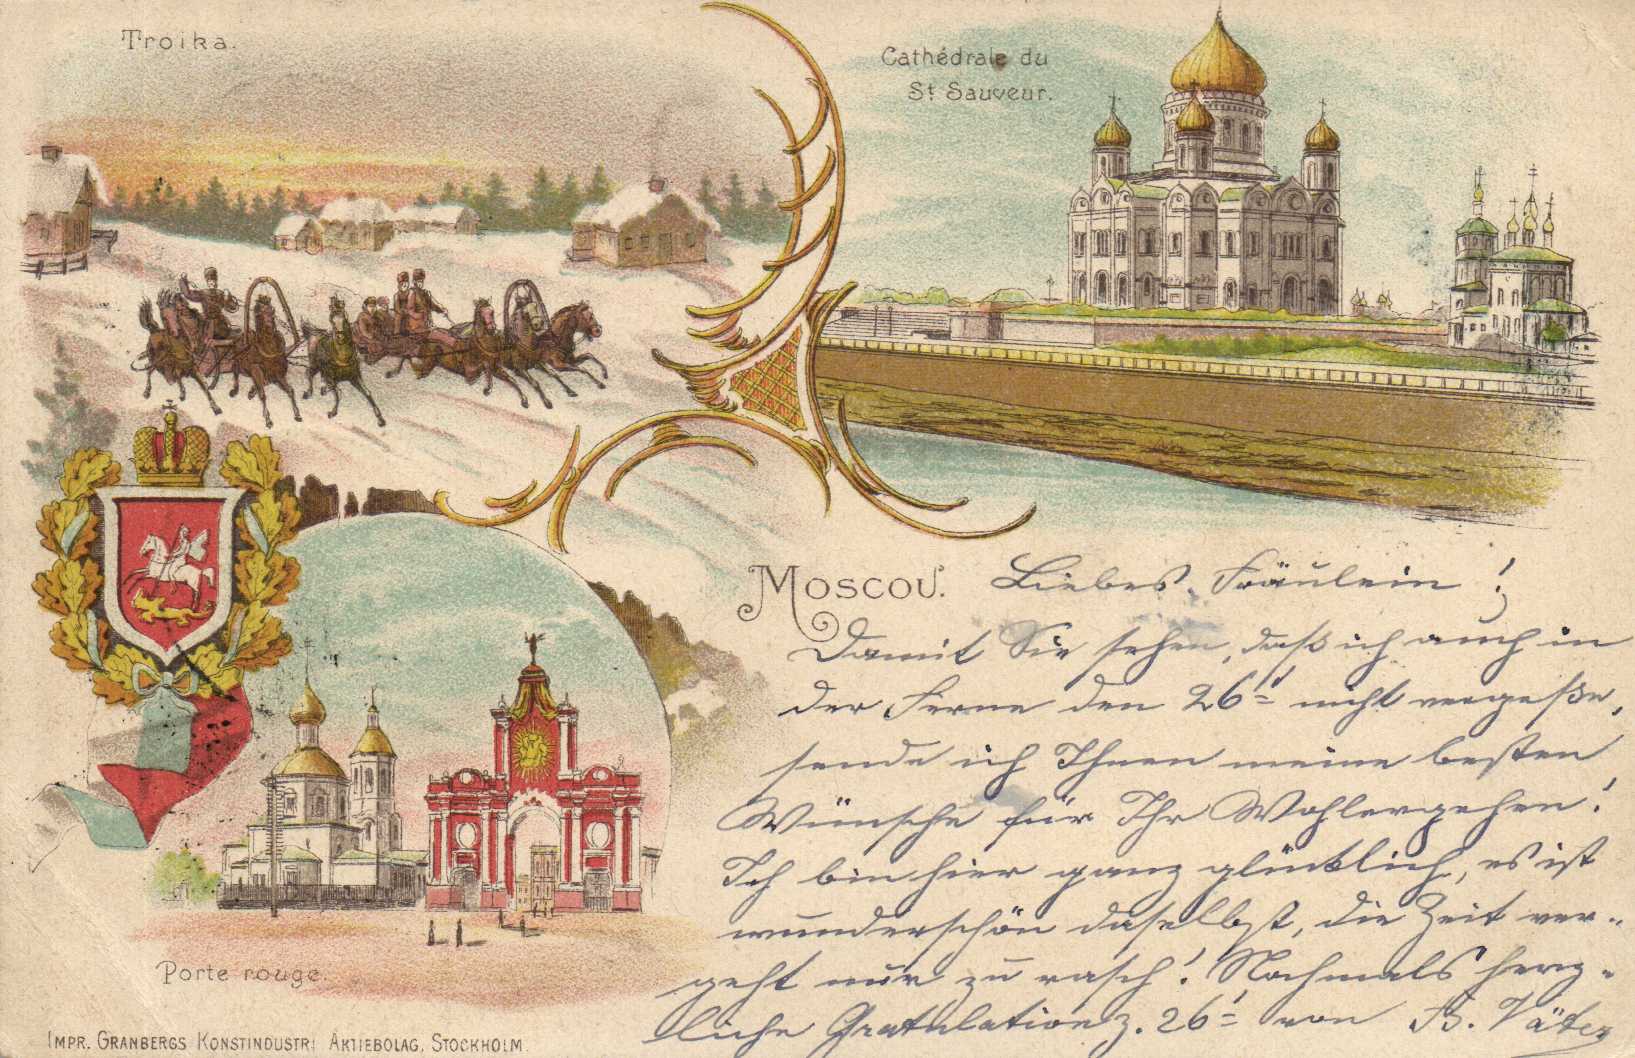 Troika.
Cathédrale du
St Sauveur.
Moscou.
Liebes Fräulein!
Damit Sie sehen, daß ich auch in
der Ferne den 26t nicht vergeße,
sende ich Ihnen meine besten
Wünsche für Ihr Wohlergehen!
Ich bin hier ganz glücklich, es ist
wunderschön daselbst, die Zeit ver-
geht nur zu rasch! Nochmals herz-
liche Gratulation z. 26t von B.
Porte rouge.
Impr. Granbergs Konstindustri Aktiebolag, Stockholm.